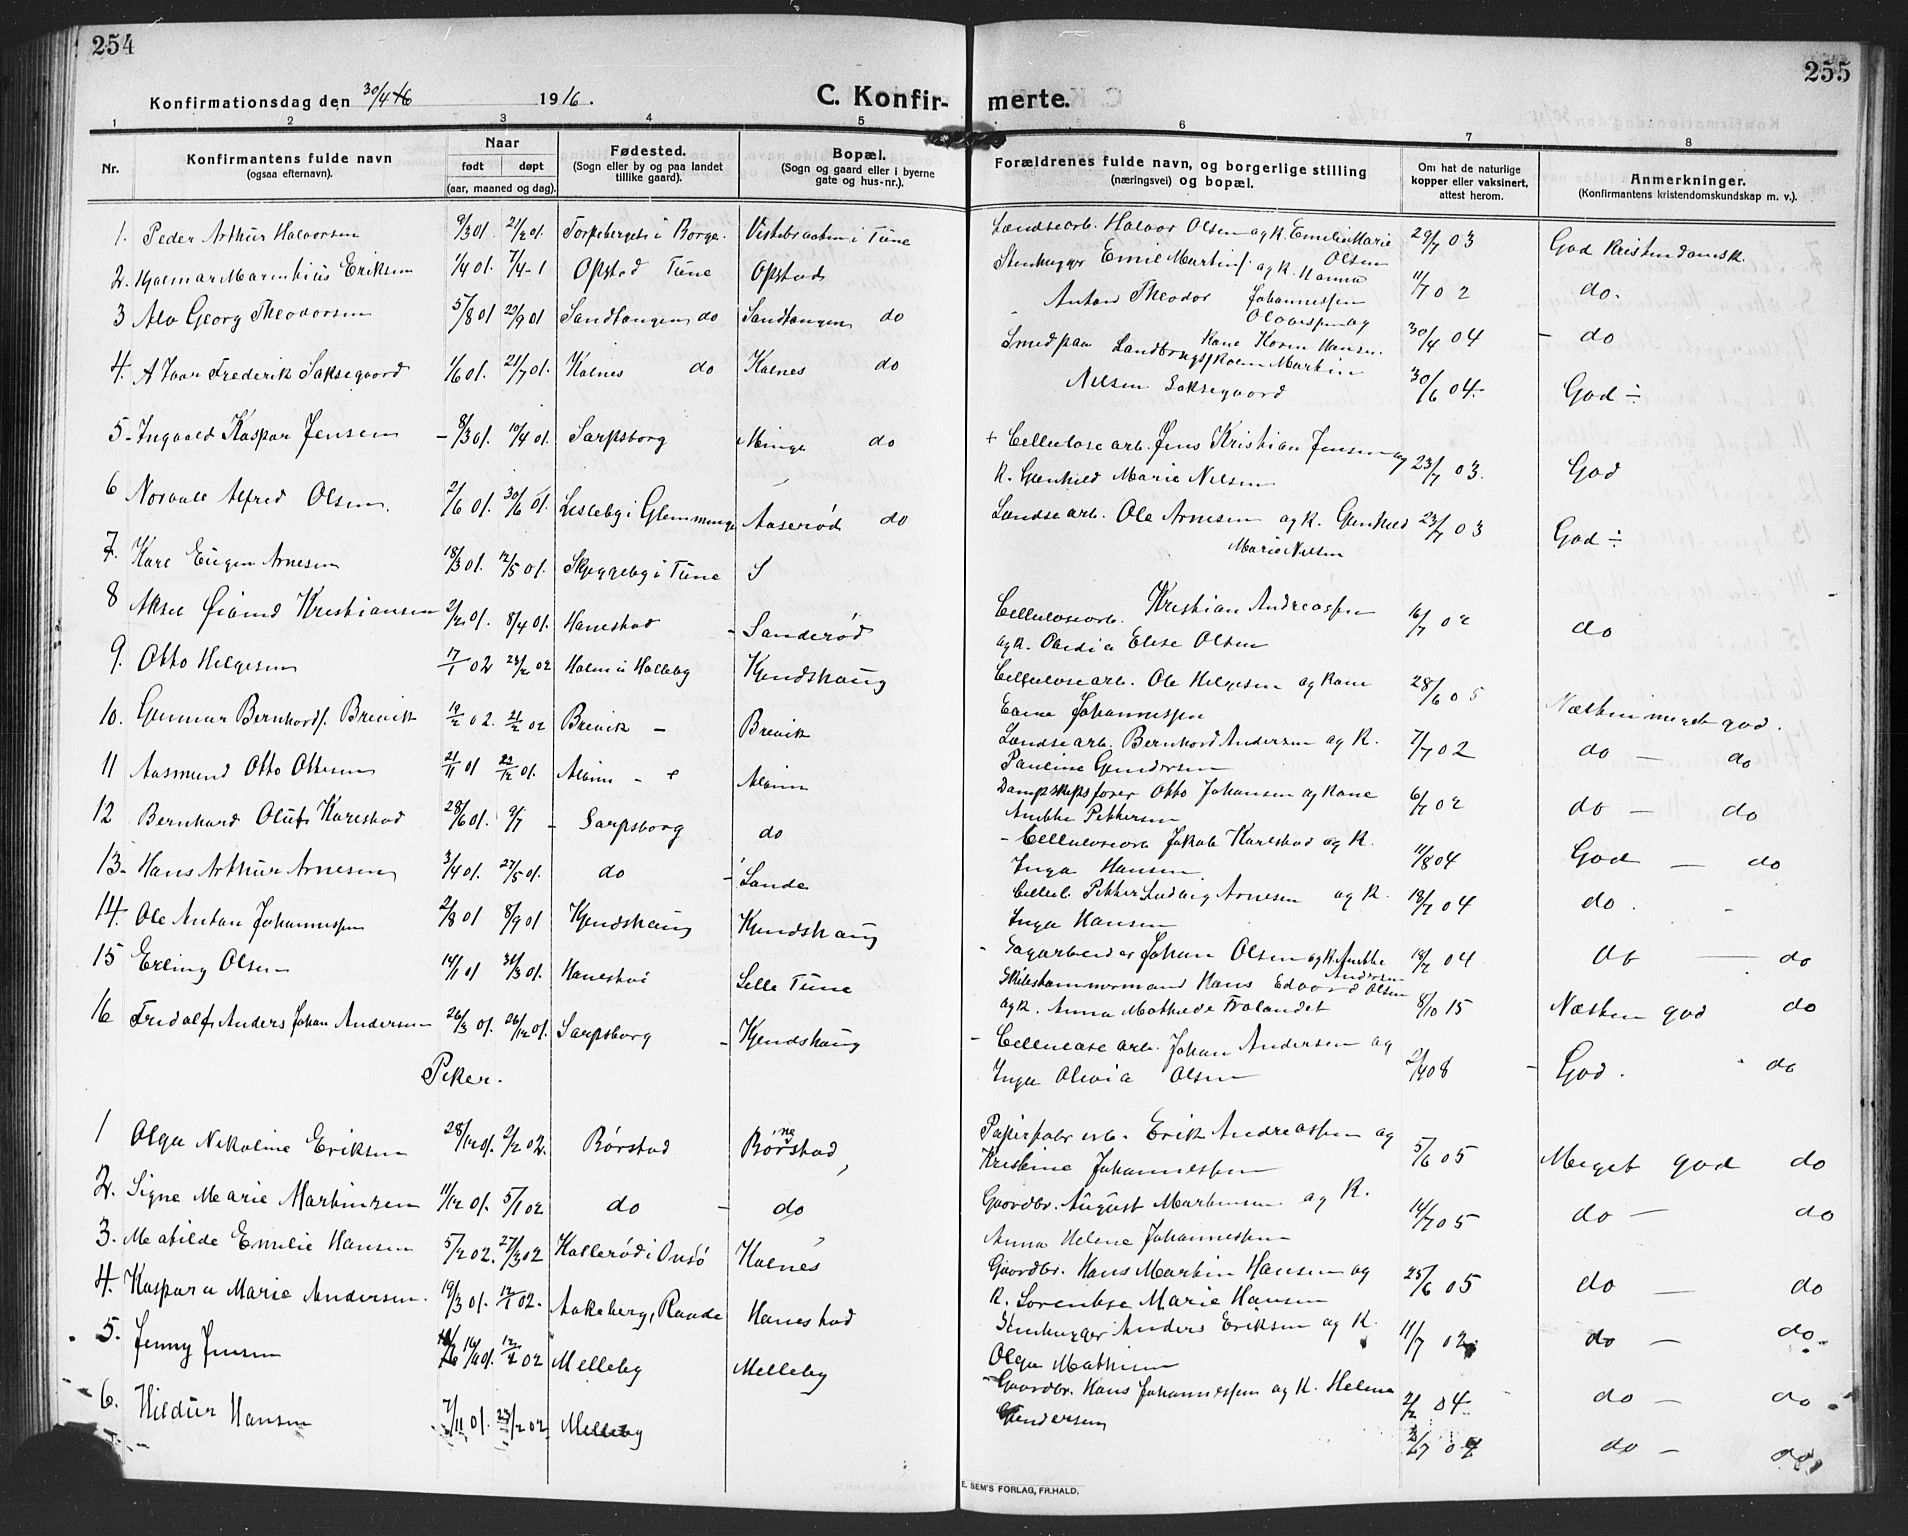 254
Konfirmationsdag den 30/4 16 1916.
C. Konfir-
1 2 3 4 5
Nr. Konfirmantens fulde navn (ogsaa efternavn). Naar født døpt (aar, maaned og dag). Fødested. (Sogn eller by og paa landet tillike gaard). Bopæl. (Sogn og gaard eller i byerne gate og hus-nr.).
1. Peder Arthur Halvorsen 9/3 01. 21/2 01. Torpeberget i Borge. Vistebraaten i Tune
2. Hjalmar Marinhius Eriksen 1/4 01. 7/4-1 Opstad Tune Opstad
3 Alv Georg Theodorsen 5/8 01 29/9 01 Sandtangen do Sandtangen do
4. A Ivar Frederik Saksegaard 1/6 01. 21/7 01. Kalnes do Kalnes do
5- Ingvald Kaspar Jensen - 8/3 01. 10/4 01. Sarpsborg Minge do
6 Norvald Alfred Olsen. 2/6 01. 30/6 01. Lisleby i Glemminge Aaserød do
7. Karl Eugen Arnesen 18/3 01. 12/5 01. Skjeggeby i Tune S
8 Aksel Øivind Kristiansen 2/2 01. 8/4 01. Hanestad - Sanderød
9. Otto Helgesen 17/1 02 23/2 02 Holm i Halleby Kjendshaug
10. Gunnar Bernhardf. Brevik 19/2 02. 21/2 02 Brevik - Brevik
11 Aasmund Otto Ottesen 21/11 01 22/12 01. Alvim - Alvim
12 Bernhard Oluf Karlstad 28/6 01. 9/7 - Sarpsborg do
13. Hans Arthur Arnesen 3/4 01. 27/5 01. do - Sande
14. Ole Anton Johannessen 2/8 01 8/9 01 Kjendshaug Kjendshaug
15 Erling Olsen 14/1 01 31/3 01. Hanestad Lille Tune
16 Fridolf Anders Johan Andersen 26/3 01. 26/12 01. Sarpsborg - Kjendshaug
Piker.
1 Olga Nikoline Eriksen 28/12 01. 2/2 02. Børstad Børstad
2. Signe Marie Martinsen 11/12 01. 5/1 02 do - do
3. Matilde Emilie Hansen 5/2 02. 27/3 02 Hallerød i Onsø Kalnes
4. Kaspara Marie Andersen. 19/3 01. 12/1 02. Aakeberg, Raade Hanestad
5. Jenny Jensen 01. 02 Melleby Melleby
6. Hildur Hansen 7/11 01. 23/2 02 Melleby
255
merte.
6 7 8
Forældrenes fulde navn, og borgerlige stilling (næringsvei) og bopæl. Om hat de naturlige kopper eller vaksinert, attest herom. Anmerkninger. (Konfirmantens kristendomskundskap m. v.).
Landsearb. Halvor Olsen og K. Emilie Marie Olsen 29/7 03 God kristendomsk.
Stenhugger Emil Martinf. og K. Hanna Johannessen 11/7 02 do.
Anton Theodor Olavessen og Kone Karen Hansen. 30/4 04 - do
Smed paa Landbrugsskolen Martin
Nilsen Saksegaard 30/6 04. God ÷
+ Cellulosearb. Jens Kristian Jensen og 23/7 03. God
K. Gunhild Marie Nilsen
Landsearb. Ole Arnesen og K. Gunhild 23/7 03 God ÷
Marie Nilsen
Cellulosearb. Kristian Andreassen 16/7 02 do
og K. Elise Olsen
Cellulosearb. Ole Helgesen og Kone 28/6 05 Næsten meget god.
Johannessen
Landsearb. Bernhard Andersen og K. 7/7 02 do - do
Pauline Gundersen
Dampskipsfører Otto Johansen og Kone 6/7 02 do - do
Pettersen
- Cellulosearb Jakob Karlstad og K. 11/8 04 God - do
Inga Hansen
Cellul. Petter Ludvig Arnesen og K. 18/7 04 do. -
Inga Hansen
- Sagarbeider Johan Olsen og K. Andersen 18/7 04 do - do
Skibstømmermand Hans Edvard Olsen 8/10 15 Næsten god do
og K. Anna Mathilde Frolandet
- Cellulose arb. Johan Andersen og 08 - God. do
Inga Olivia Olsen
Papirfabr arb. Erik Andreassen og 5/6 05 Meget god do
Kristine Johannessen
Gaardbr. August Martinsen og K. 14/7 05 do - do
Anna Helene Johannessen
Gaardbr. Hans Martin Hansen og 25/6 05 do - do
K. Lorentse Marie Hansen
Stenhugger Anders Eriksen og K. 11/7 02 do - do
Olga Mathisen
- Gaardbr. Hans Johannessen og K. Helena 2/2 04 do - do
Gundersen do - do
E. SEM'S FORLAG, FR.HALD.